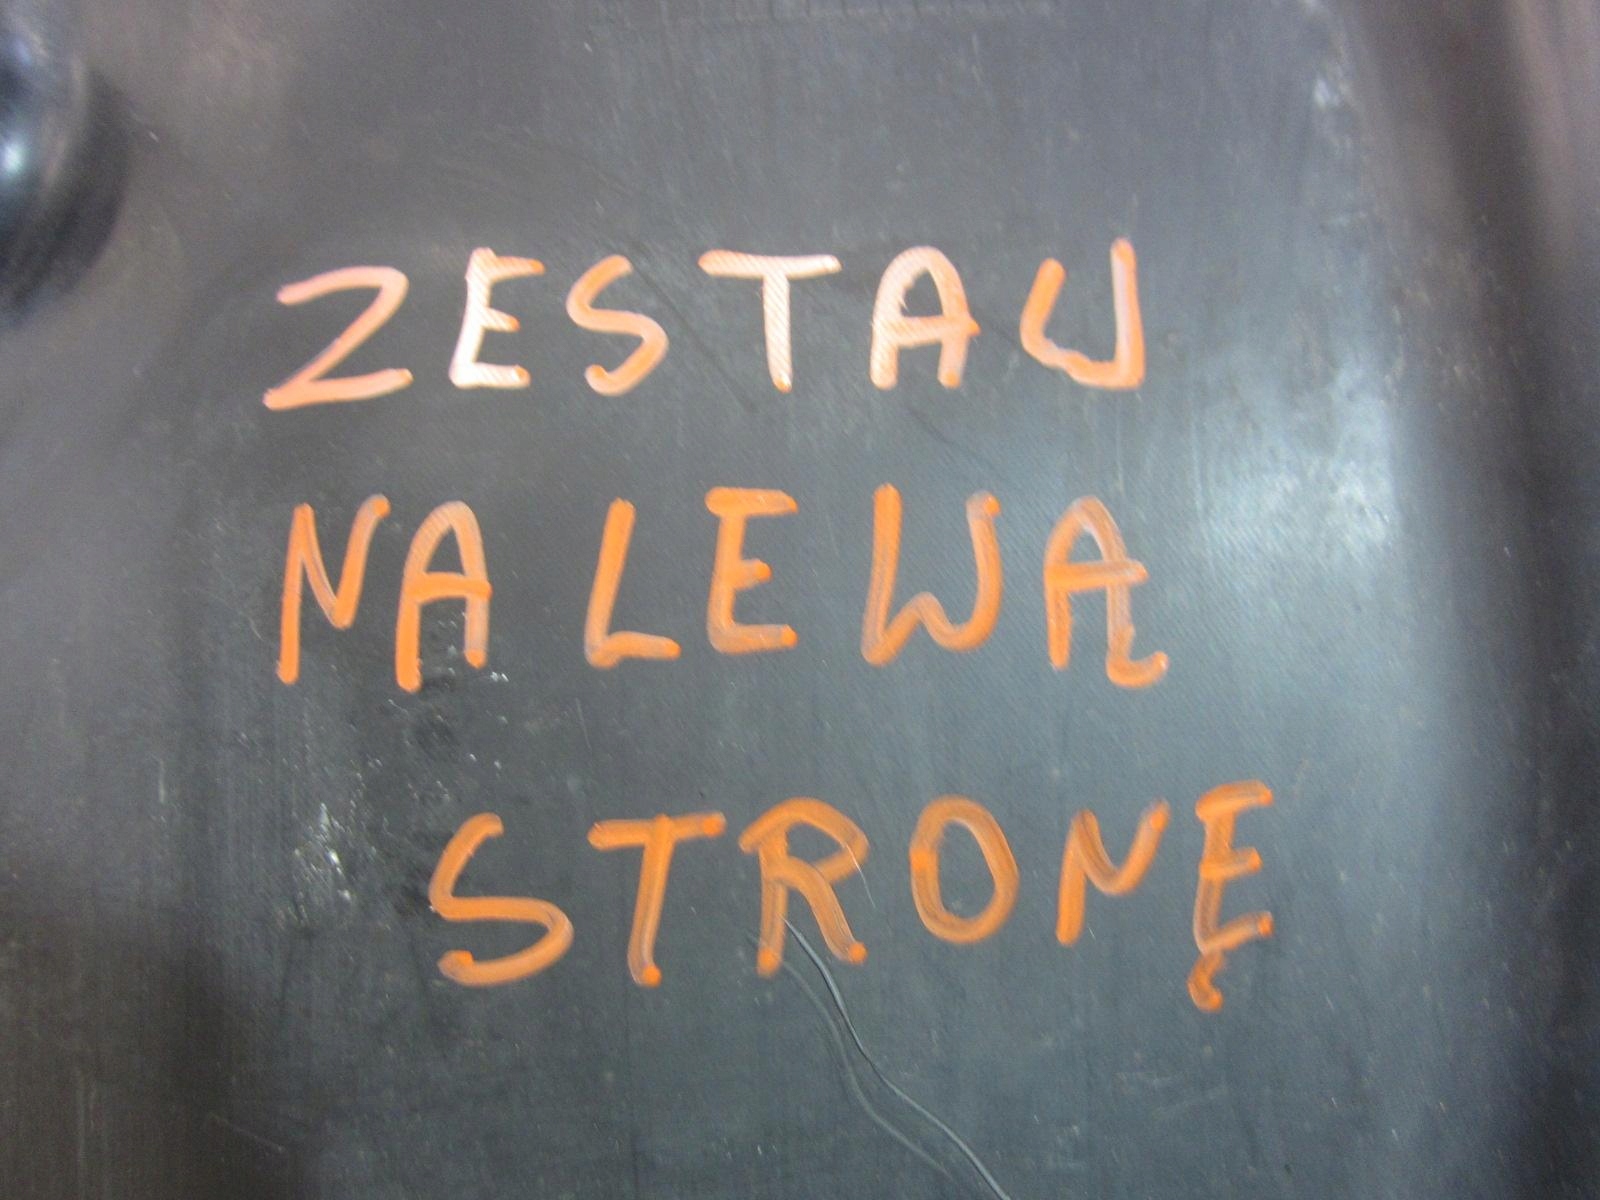 ZESTAW
NA LEWĄ
STRONĘ